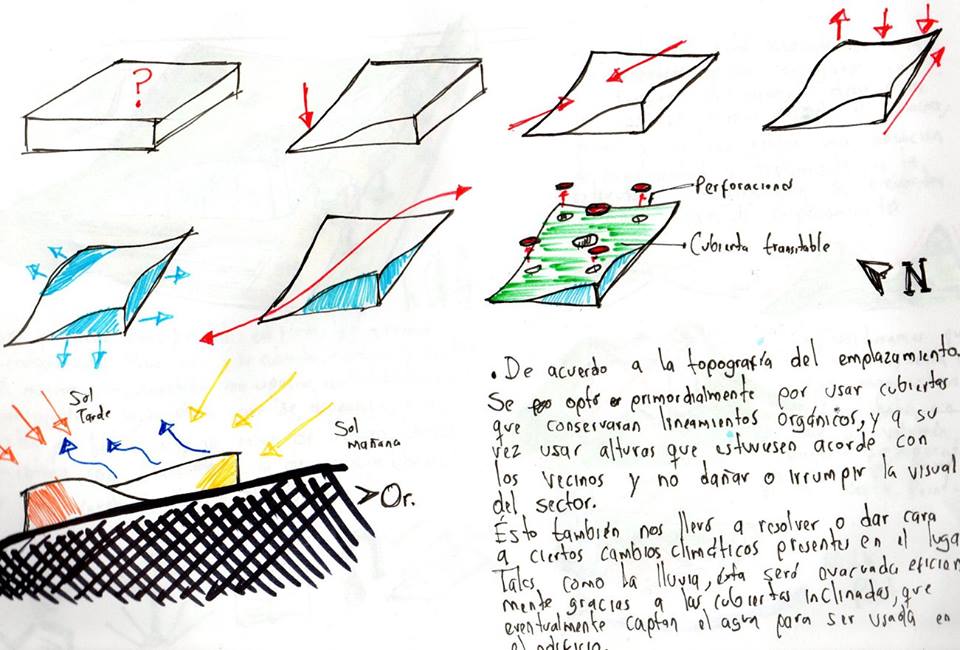 ?
Perforaciones
Cubierta transitable
N
Sol
Tarde
Sol
mañana
Or.
. De acuerdo a la topografía del emplazamiento
Se opto primordialmente por usar cubiertas
que conservaran lineamientos orgánicos, y a su
vez usar alturas que estuviesen acorde con
los vecinos y no dañar o irrumpir la visual
del sector.
Ésto también nos llevó a resolver o dar cara
a ciertos cambios climáticos presentes en el luga
Tales como la lluvia, ésta será evacuada eficien
mente gracias a las cubiertas inclinadas, que
eventualmente captan el agua para ser usada en
el edificio.